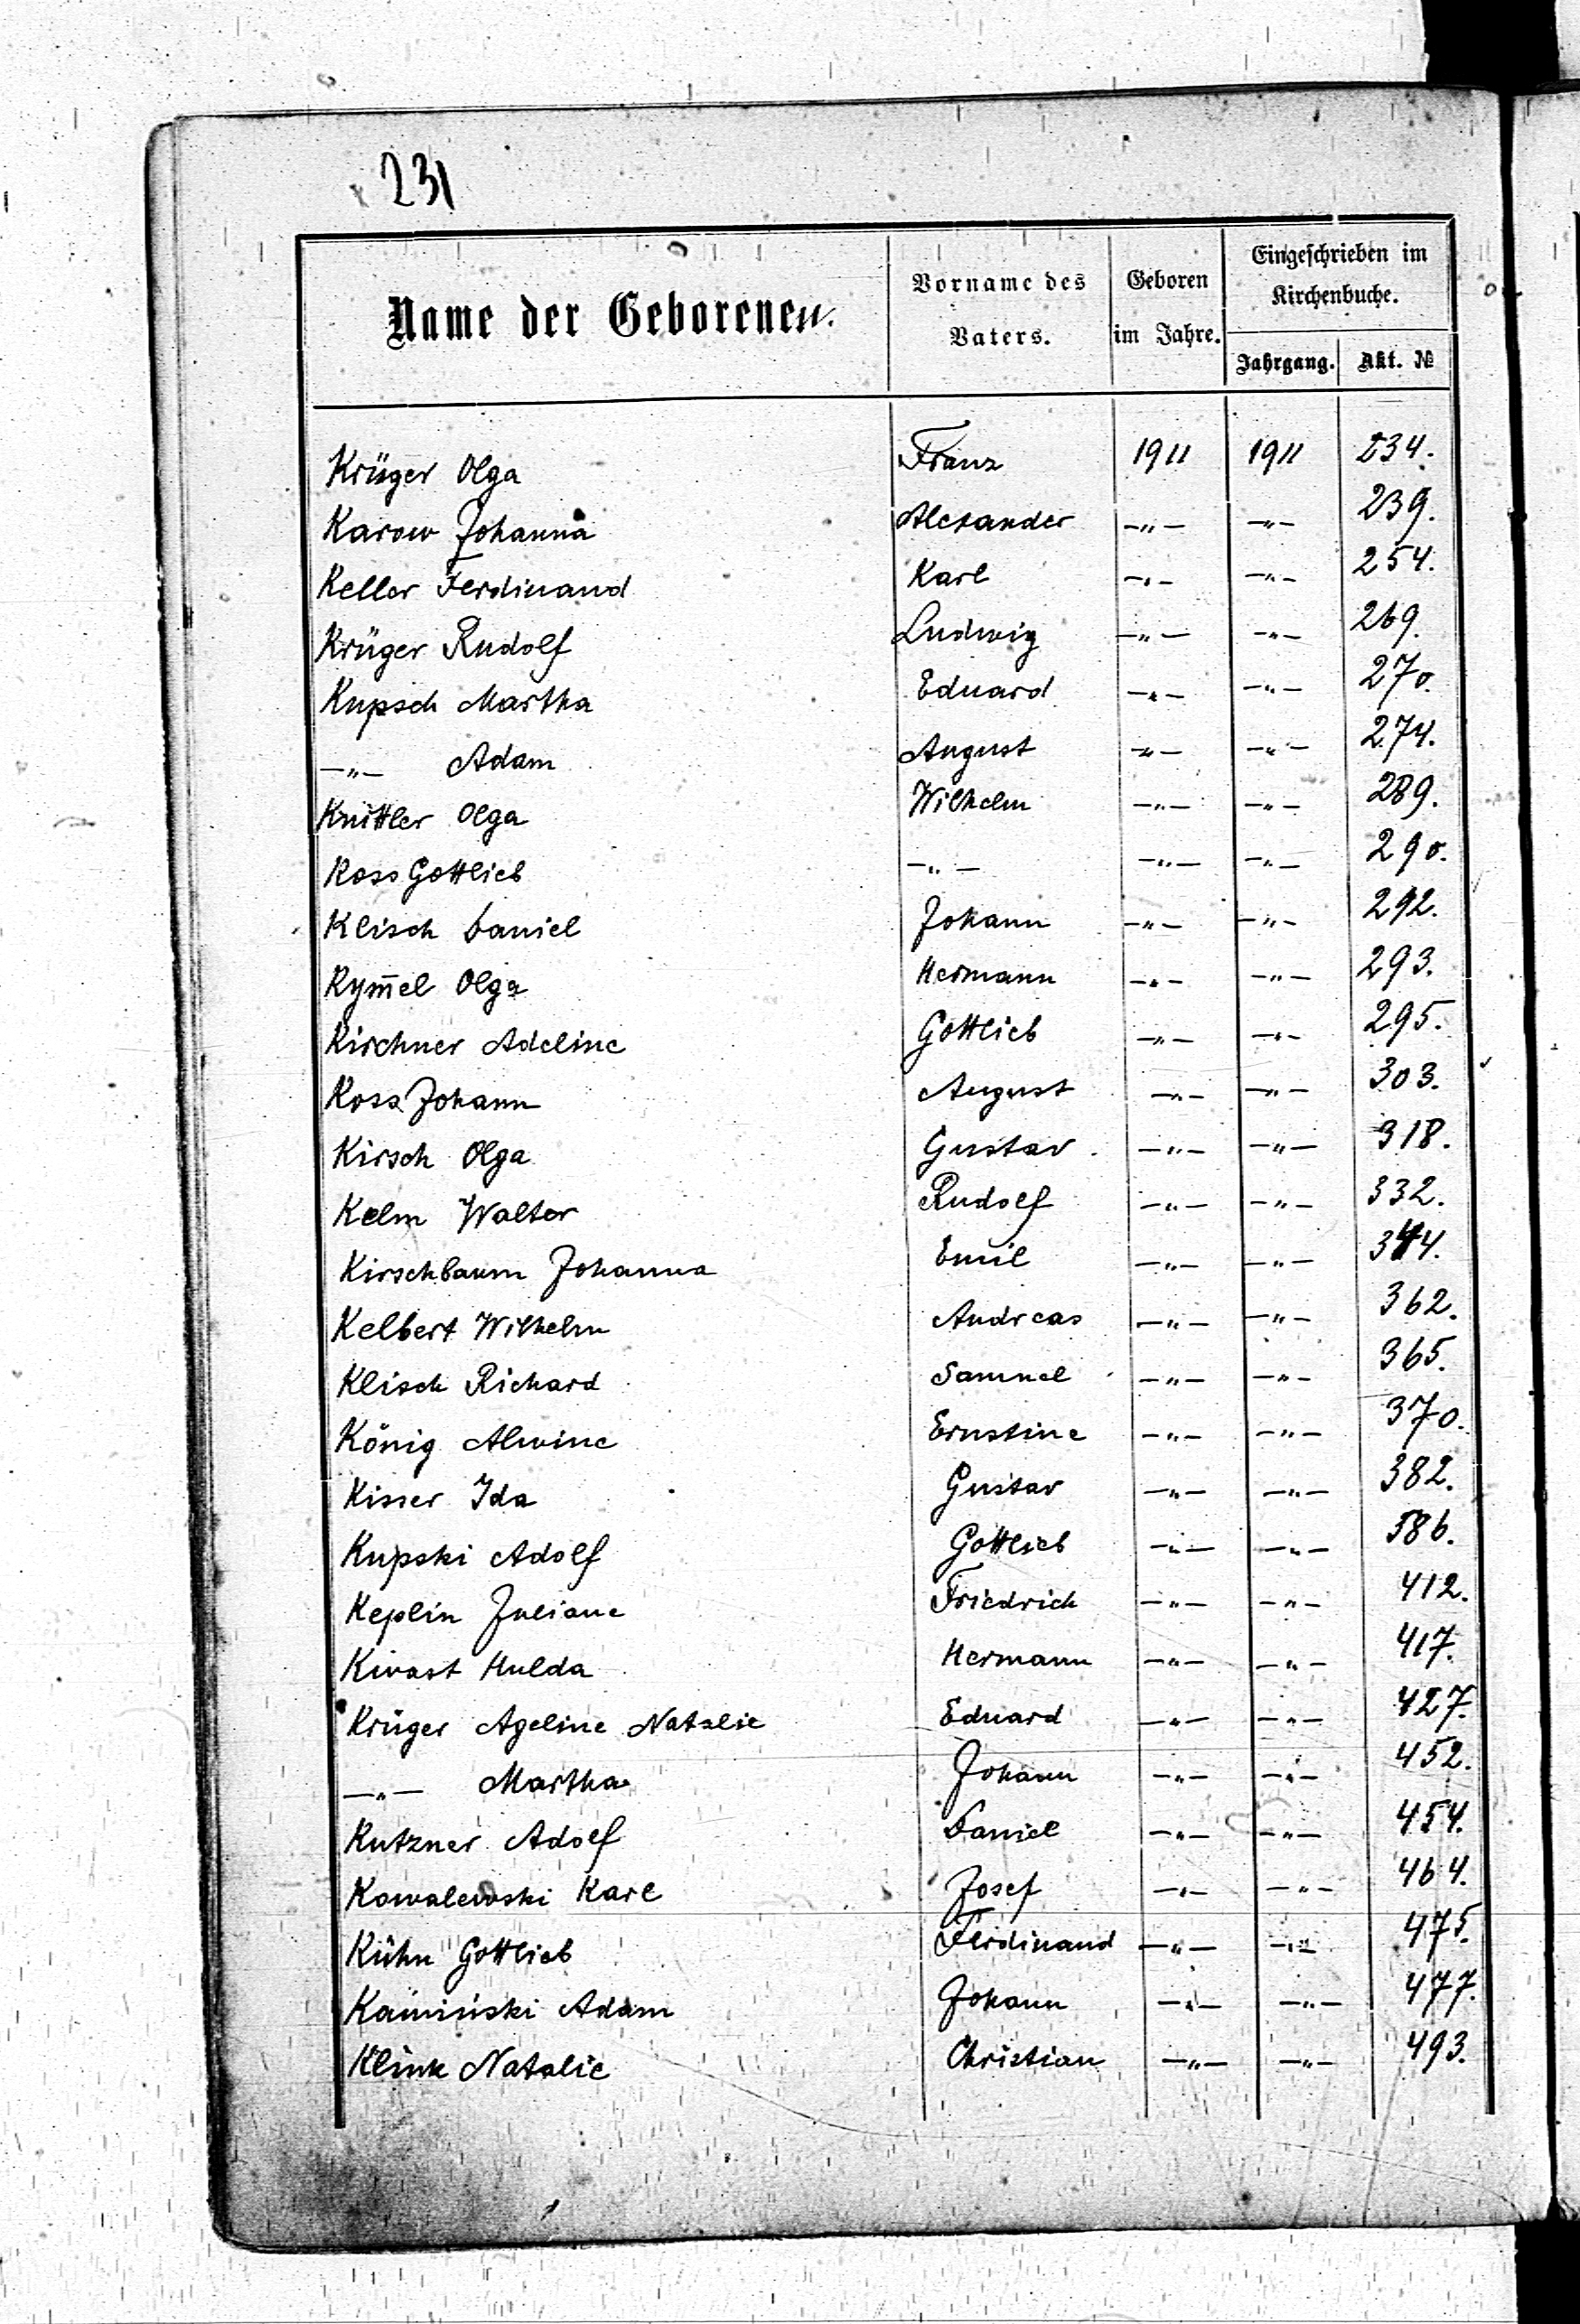 231
Name der Geborenen.
Vorname des Vaters.
Geboren im Jahre.
Eingeschrieben im Kirchenbuche.
Jahrgang. Akt. №
Krüger Olga Franz 1911 1911 234.
Karow Johanna Alexander -"- -"- 239.
Keller Ferdinand Karl -"- -"- 254.
Krüger Rudolf Ludwig -"- -"- 269.
Kupsch Martha Eduard -"- -"- 270.
-"- Adam August -"- -"- 274.
Knittler Olga Wilhelm -"- -"- 289.
Koss Gottlieb -"- -"- -"- 290.
Klisch Daniel Johann -"- -"- 292.
Kym̅el Olga Hermann -"- -"- 293.
Kirchner Adeline Gottlieb -"- -"- 295.
Koss Johann August -"- -"- 303.
Kirsch Olga Gustav -"- -"- 318.
Kelm Walter Rudolf -"- -"- 332.
Kirschbaum Johanna Emil -"- -"- 344.
Kelbert Wilhelm Andreas -"- -"- 362.
Klisch Richard Samuel -"- -"- 365.
König Alwine Ernstine -"- -"- 370.
Kisser Ida Gustav -"- -"- 382.
Kupski Adolf Gottlieb -"- -"- 386.
Keplin Juliane Friedrich -"- -"- 412.
Kwast Hulda Hermann -"- -"- 417.
Krüger Ageline Natalie Eduard -"- -"- 427.
-"- Martha Johann -"- -"- 452.
Kutzner Adolf Daniel -"- -"- 454.
Kowalewski Karl Josef -"- -"- 464.
Kühn Gottlieb Ferdinand -"- -"- 475.
Kaminski Adam Johann -"- -"- 477.
Klink Natalie Christian -"- -"- 493.